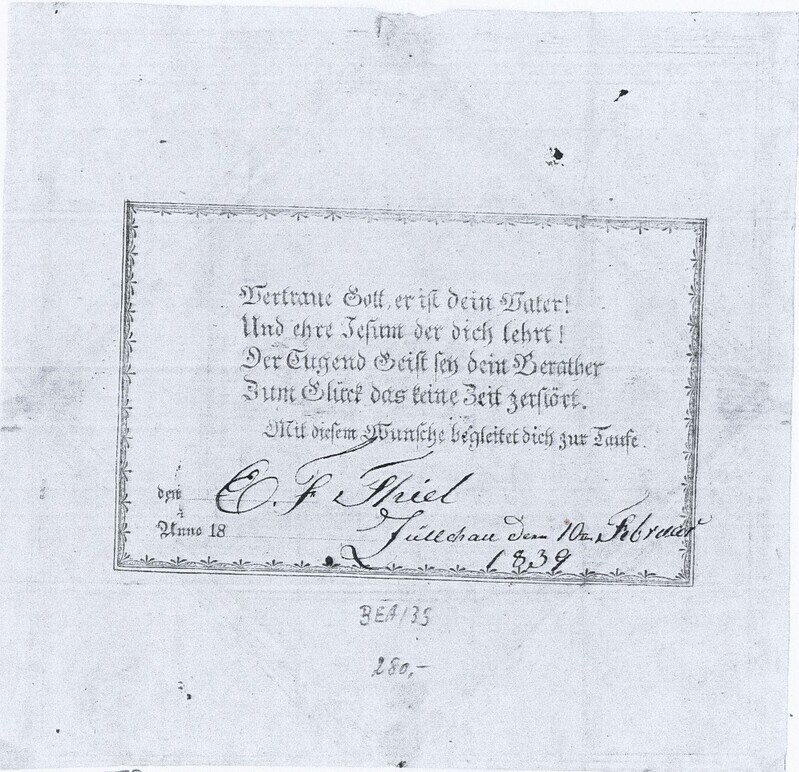 Vertraue Gott, er ist dein Vater!
Und ehre Jesum der dich lehrt!
Der Tugend Geist sey dein Berather
Zum Glück das keine Zeit zerstört.
Mit diesem Wunsche begleitet dich zur Taufe
den E. F. Thiel
Anno 18 Züllchau den 10ten Februar
1839
BEA/35
280,-